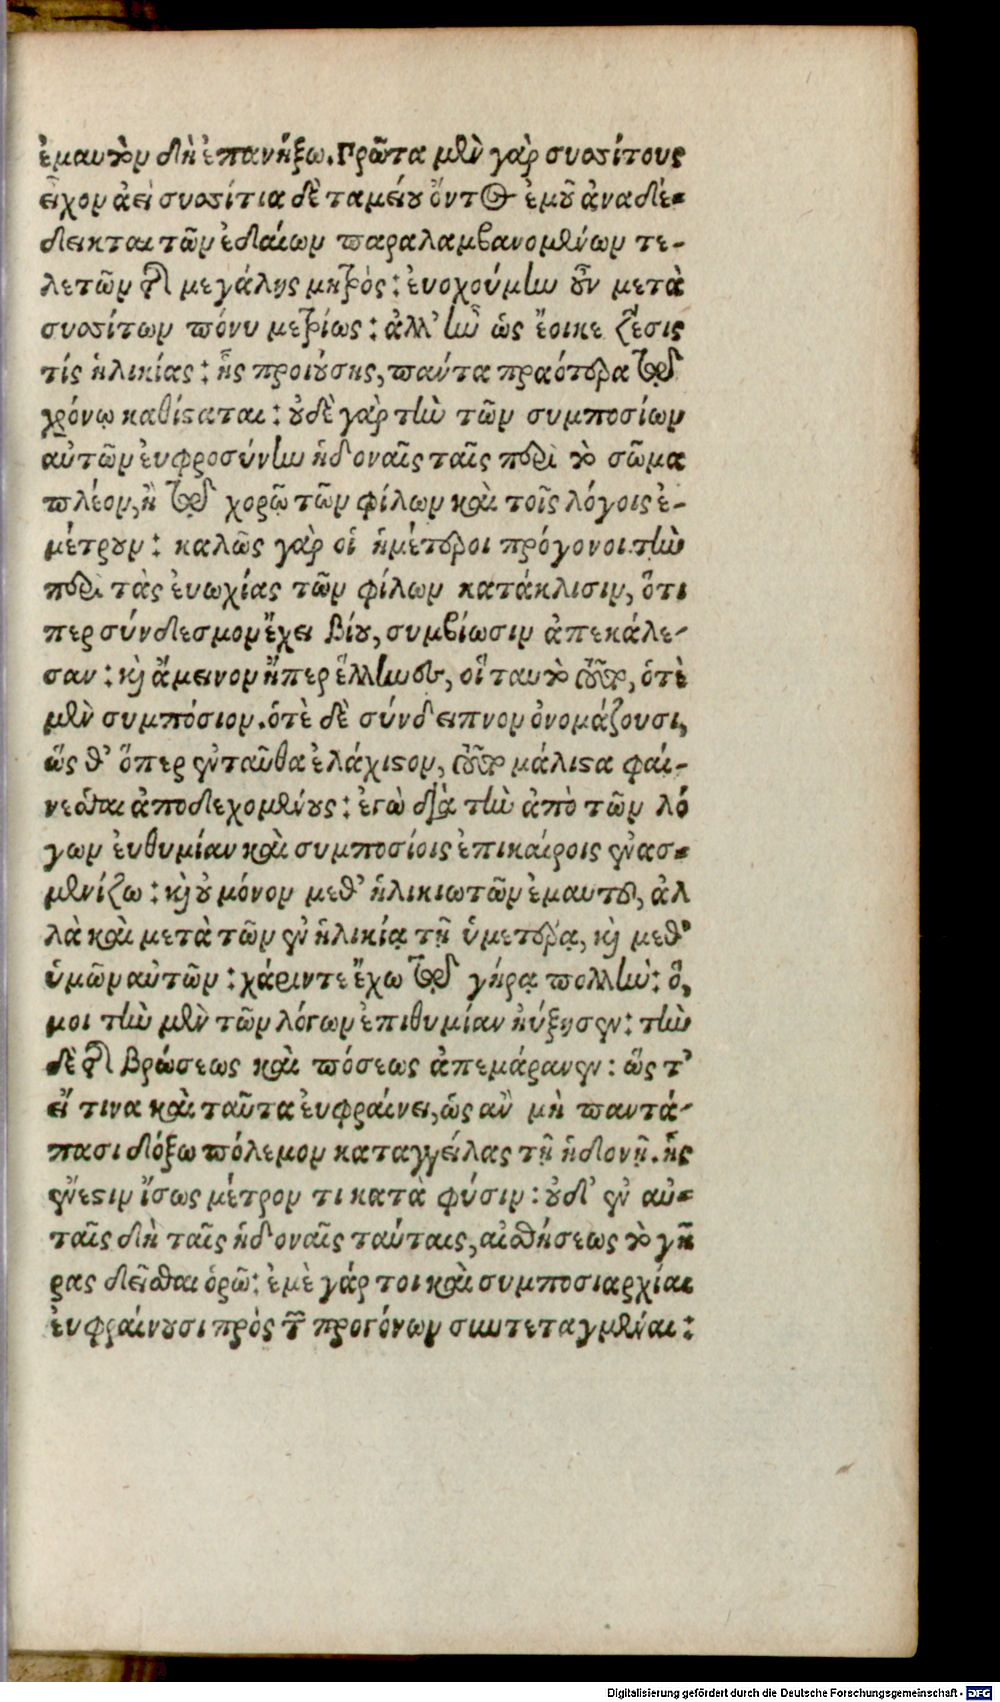 ἐμαυτὸν δὴ ἐπανήξω. Πρῶτα μὲν γὰρ συσσίτους
εἶχον ἀεὶ συσσίτια δὲ ταμείου ὄντος ἐμοῦ ἀναδέ-
δεικται τῶν ἐδαίων παραλαμβανομένων τε-
λετῶν τῆς μεγάλης μητρὸς: ἐυοχούμην οὖν μετὰ
συσσίτων πόνυ μετρίως: ἀλλ' ἦν ὡς ἔοικε ζέσις
τίς ἡλικίας: ἧς προιούσης, πάντα πραότερα τῷ
χρόνῳ καθίσαται: οὐδὲ γὰρ τὴν τῶν συμποσίων
αὐτῶν ἐυφροσύνην ἡδοναῖς ταῖς περὶ τὸ σῶμα
πλέον, ἢ τῷ χορῷ τῶν φίλων καὶ τοῖς λόγοις ἐ-
μέτρουν: καλῶς γὰρ οἱ ἡμέτεροι πρόγονοι τὴν
περὶ τὰς ἐυωχίας τῶν φίλων κατάκλισιν, ὅτι
περ σύνδεσμον ἔχει βίου, συμβίωσιν ἀπεκάλε-
σαν: καὶ ἄμεινον ἤπερ ἕλληνες, οἳ ταυτὸ τοῦτο, ὁτὲ
μὲν συμπόσιον. ὁτὲ δὲ σύνδειπνον ὀνομάζουσι,
ὥς θ' ὅπερ ἐνταῦθα ἐλάχιστον, τοῦτο μάλιστα φαί-
νεσθαι ἀποδεχομένους: ἐγὼ διὰ τὴν ἀπὸ τῶν λό
γων ἐυθυμίαν καὶ συμποσίοις ἐπικαίροις ἐνασ-
μενίζω: καὶ οὐ μόνον μεθ' ἡλικιωτῶν ἐμαυτοῦ, ἀλ
λὰ καὶ μετὰ τῶν ἐν ἡλικίᾳ τῇ ὑμετέρᾳ, καὶ μεθ'
ὑμῶν αὐτῶν: χάριντε ἔχω τῷ γήρᾳ πολλὴν: ὅ,
μοι τὴν μὲν τῶν λόγων ἐπιθυμίαν ηὔξησεν: τὴν
δὲ τῆς βρώσεως καὶ πόσεως ἀπεμάρανεν: ὥς τ'
εἴ τινα καὶ ταῦτα ἐυφραίνει, ὡς ἂν μὴ παντά-
πασι δόξω πόλεμον καταγγείλας τῇ ἡδονῇ. ἧς
ἔνεστιν ἴσως μέτρον τι κατὰ φύσιν: οὐδ' ἐν αὐ-
ταῖς δὴ ταῖς ἡδοναῖς ταύταις, αἰσθήσεως τὸ γῆ
ρας δεῖσθαι ὁρῶ: ἐμὲ γάρ τοι καὶ συμποσιαρχίαι
ἐυφραίνουσι πρὸς τῶν προγόνων συντεταγμέναι:
Digitalisierung gefördert durch die Deutsche Forschungsgemeinschaft - DFG